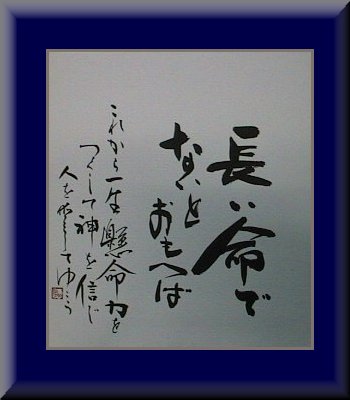 長い命で
ないと
おもへば
これから一生懸命力を
つくして神を信じ
人を
してゆこう